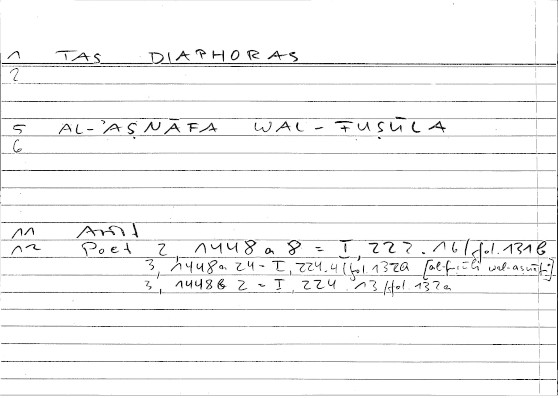 1 TAS DIAPHORAS
2
5 AL-'AṢNĀFA WAL-FUṢŪLA
6
11 Arist
12 Poet 2, 1448 a 8 = I, 222.16/fol.131b
3, 1448a 24 = I, 224.4/fol.132a
3, 1448b 2 = I, 224.13/fol.132a